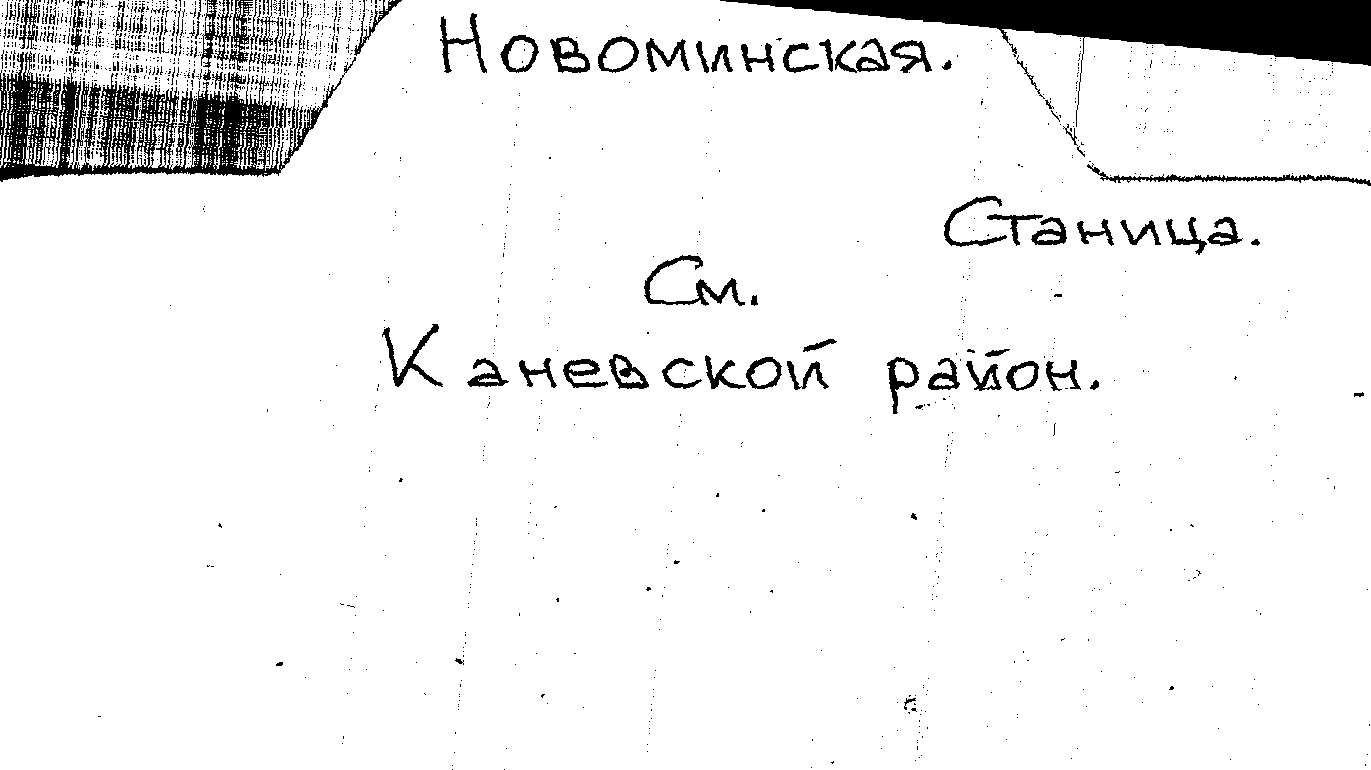 Новоминская.
Станица.
См.
Каневской район.